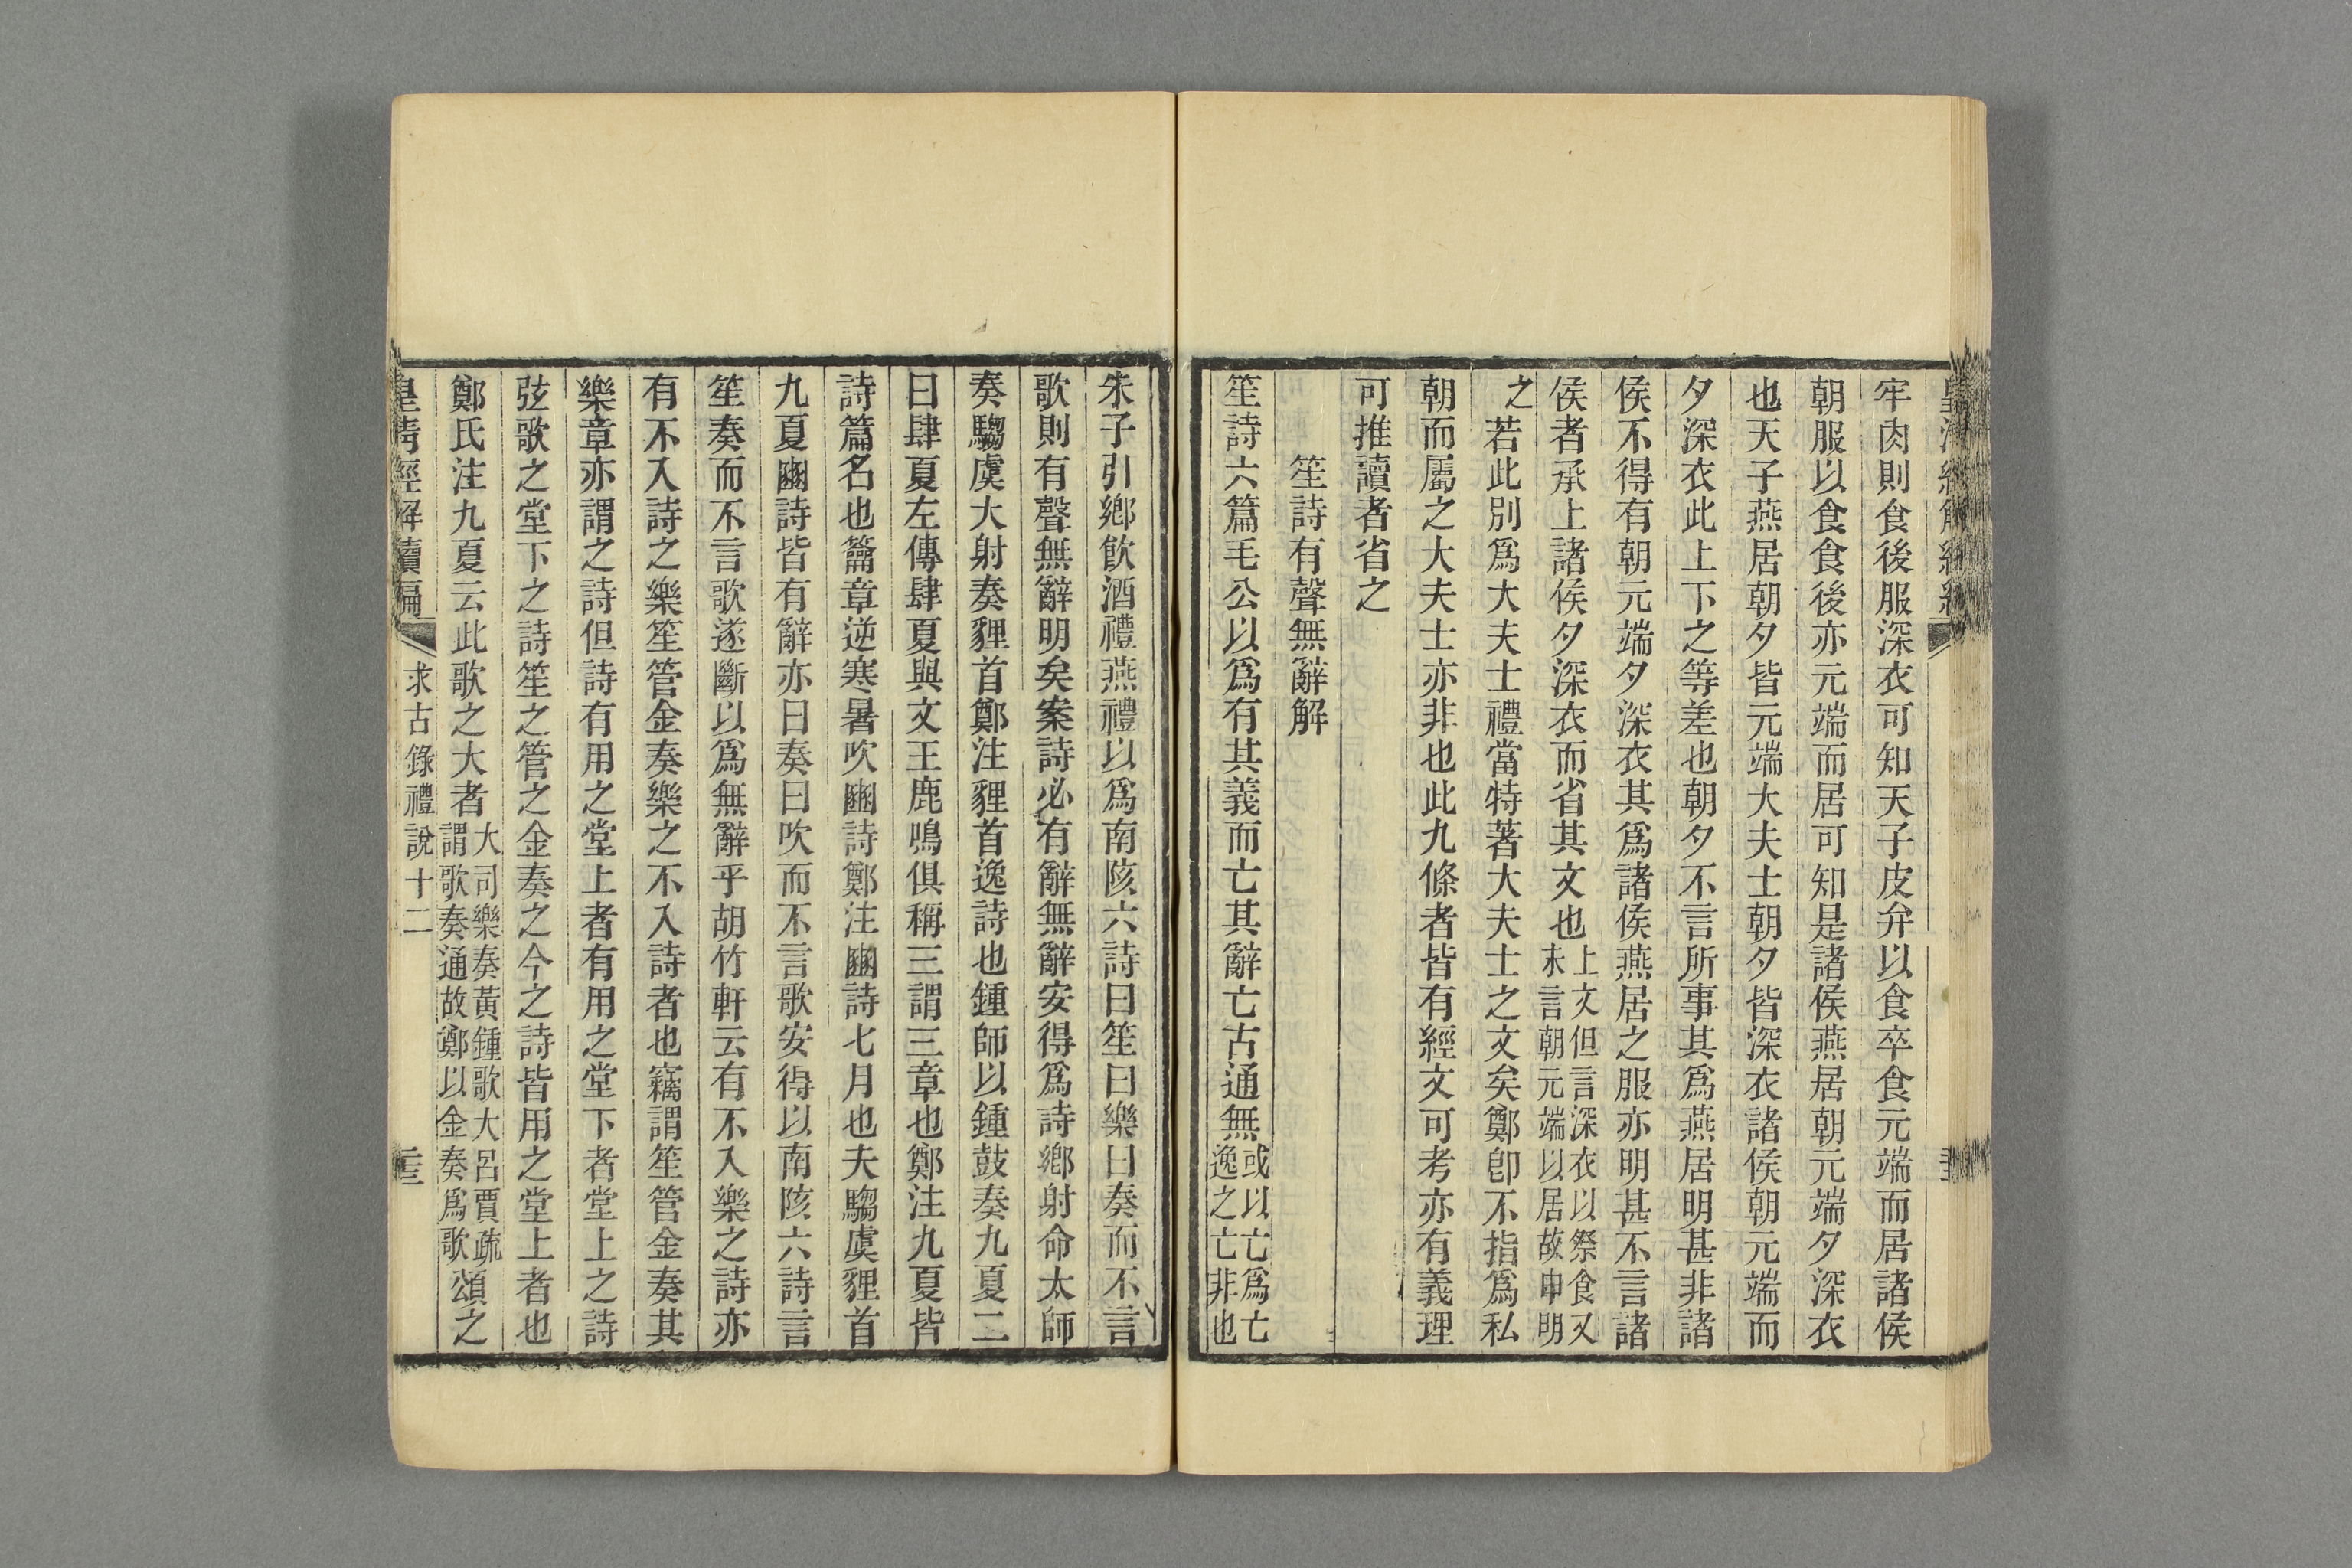 牢肉則食後服深衣可知天子皮弁以食卒食元端而居諸侯
朝服以食食後亦元端而居可知是諸侯燕居朝元端夕深衣
也天子燕居朝夕皆元端大夫士朝夕皆深衣諸侯朝元端而
夕深衣此上下之等差也朝夕不言所事其爲燕居明甚非諸
侯不得有朝元端夕深衣其爲諸侯燕居之服亦明甚不言諸
侯者承上諸侯夕深衣而省其文也
上文但言深衣以祭食又
末言朝元端以居故申明
之
若此別爲大夫士禮當特著大夫士之文矣鄭卽不指爲私
朝而屬之大夫士亦非也此九條者皆有經文可考亦有義理
可推讀者省之
笙詩有聲無辭解
笙詩六篇毛公以爲有其義而亡其辭亡古通無
或以亡爲亡
逸之亡非也
朱子引鄉飲酒禮燕禮以爲南陔六詩曰笙曰樂曰奏而不言
歌則有聲無辭明矣案詩必有辭無辭安得爲詩鄉射命太師
奏騶虞大射奏貍首鄭注貍首逸詩也鍾師以鍾鼓奏九夏二
曰肆夏左傳肆夏與文王鹿鳴俱稱三謂三章也鄭注九夏皆
詩篇名也籥章逆寒暑吹豳詩鄭注豳詩七月也夫騶虞貍首
九夏豳詩皆有辭亦曰奏曰吹而不言歌安得以南陔六詩言
笙奏而不言歌遂斷以爲無辭乎胡竹軒云有不入樂之詩亦
有不入詩之樂笙管金奏樂之不入詩者也竊謂笙管金奏其
樂章亦謂之詩但詩有用之堂上者有用之堂下者堂上之詩
弦歌之堂下之詩笙之管之金奏之今之詩皆用之堂上者也
鄭氏注九夏云此歌之大者
大司樂奏黃鍾歌大呂賈疏
謂歌奏通故鄭以金奏爲歌
頌之
皇清經解續編
求古錄禮說十二